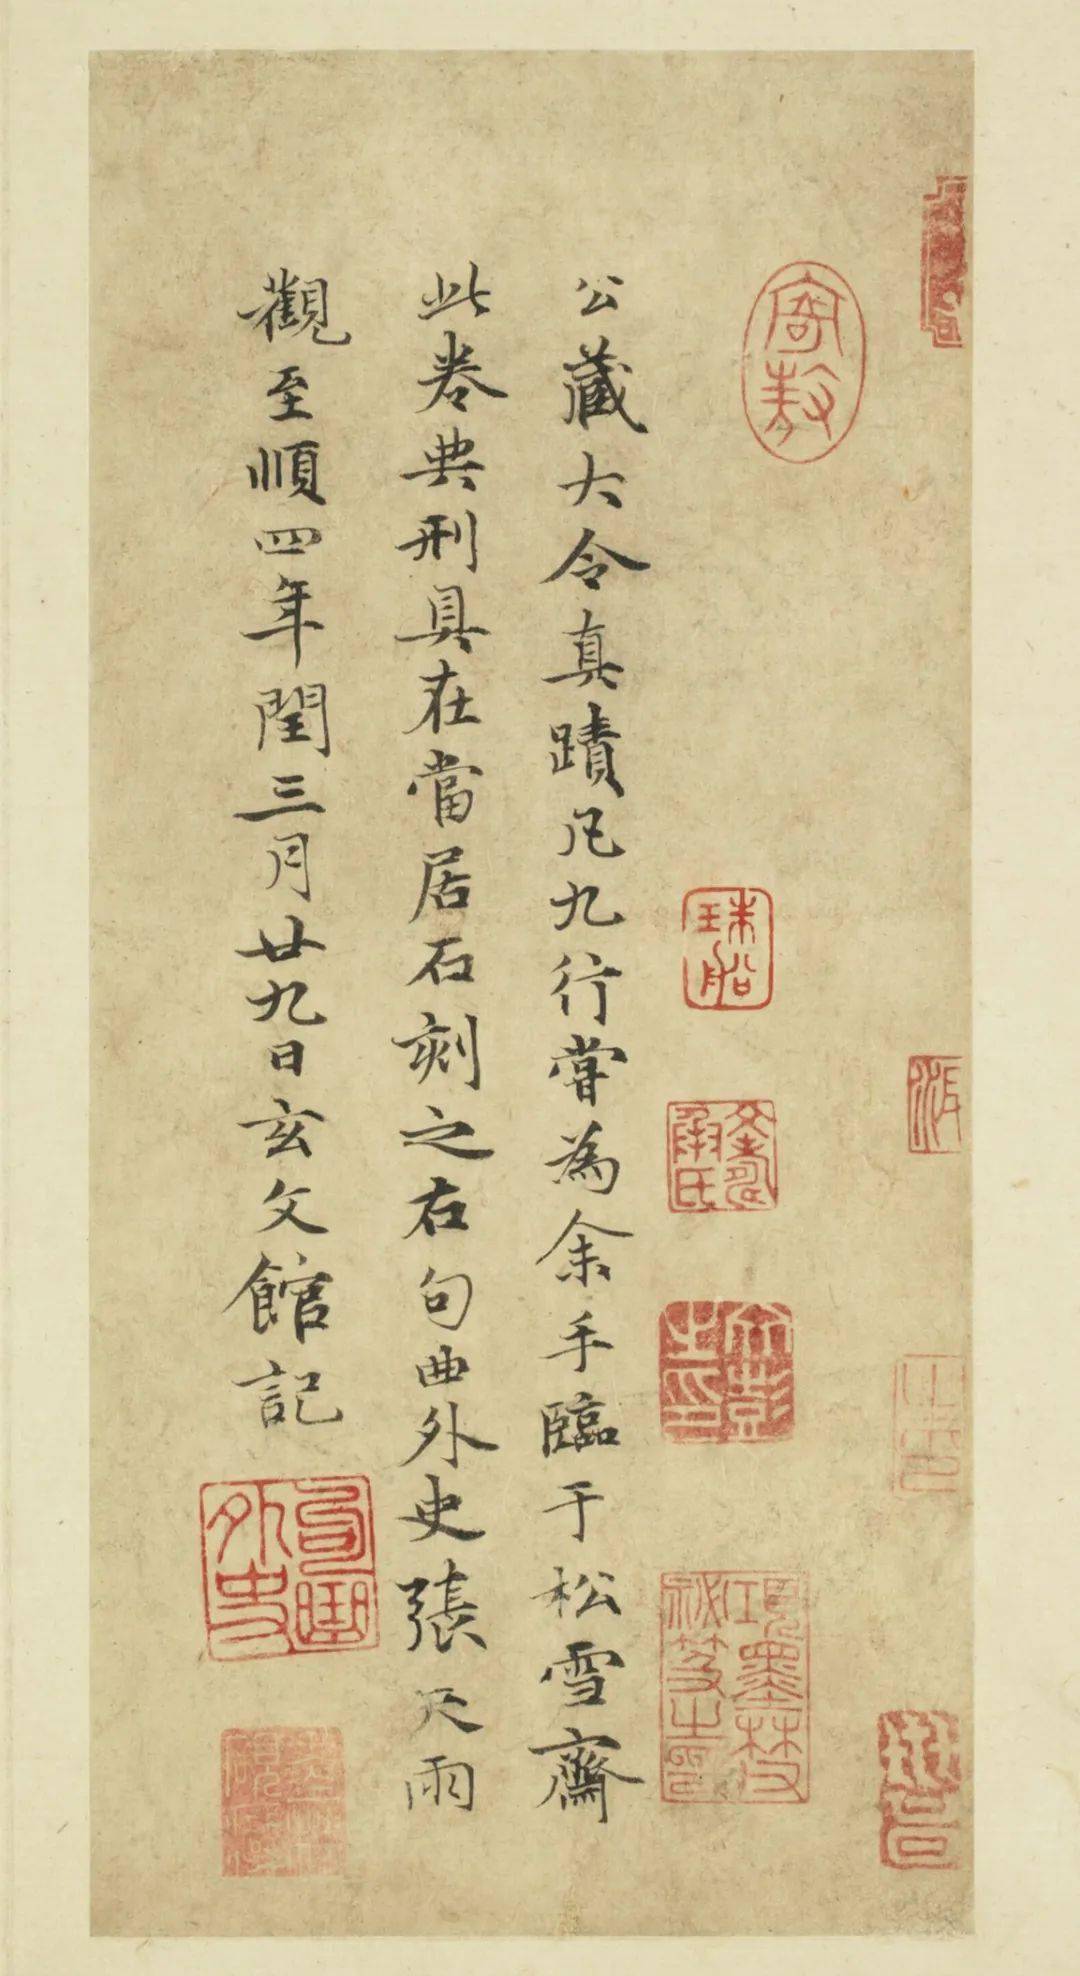 公藏大令真蹟凡九行嘗為余手臨于松雪齋
此卷典刑具在當居石刻之右句曲外史張天雨
觀至順四年閏三月廿九日玄文館記
寄敖
珠船
文彭之印
項墨林父祕笈之印
句曲外史